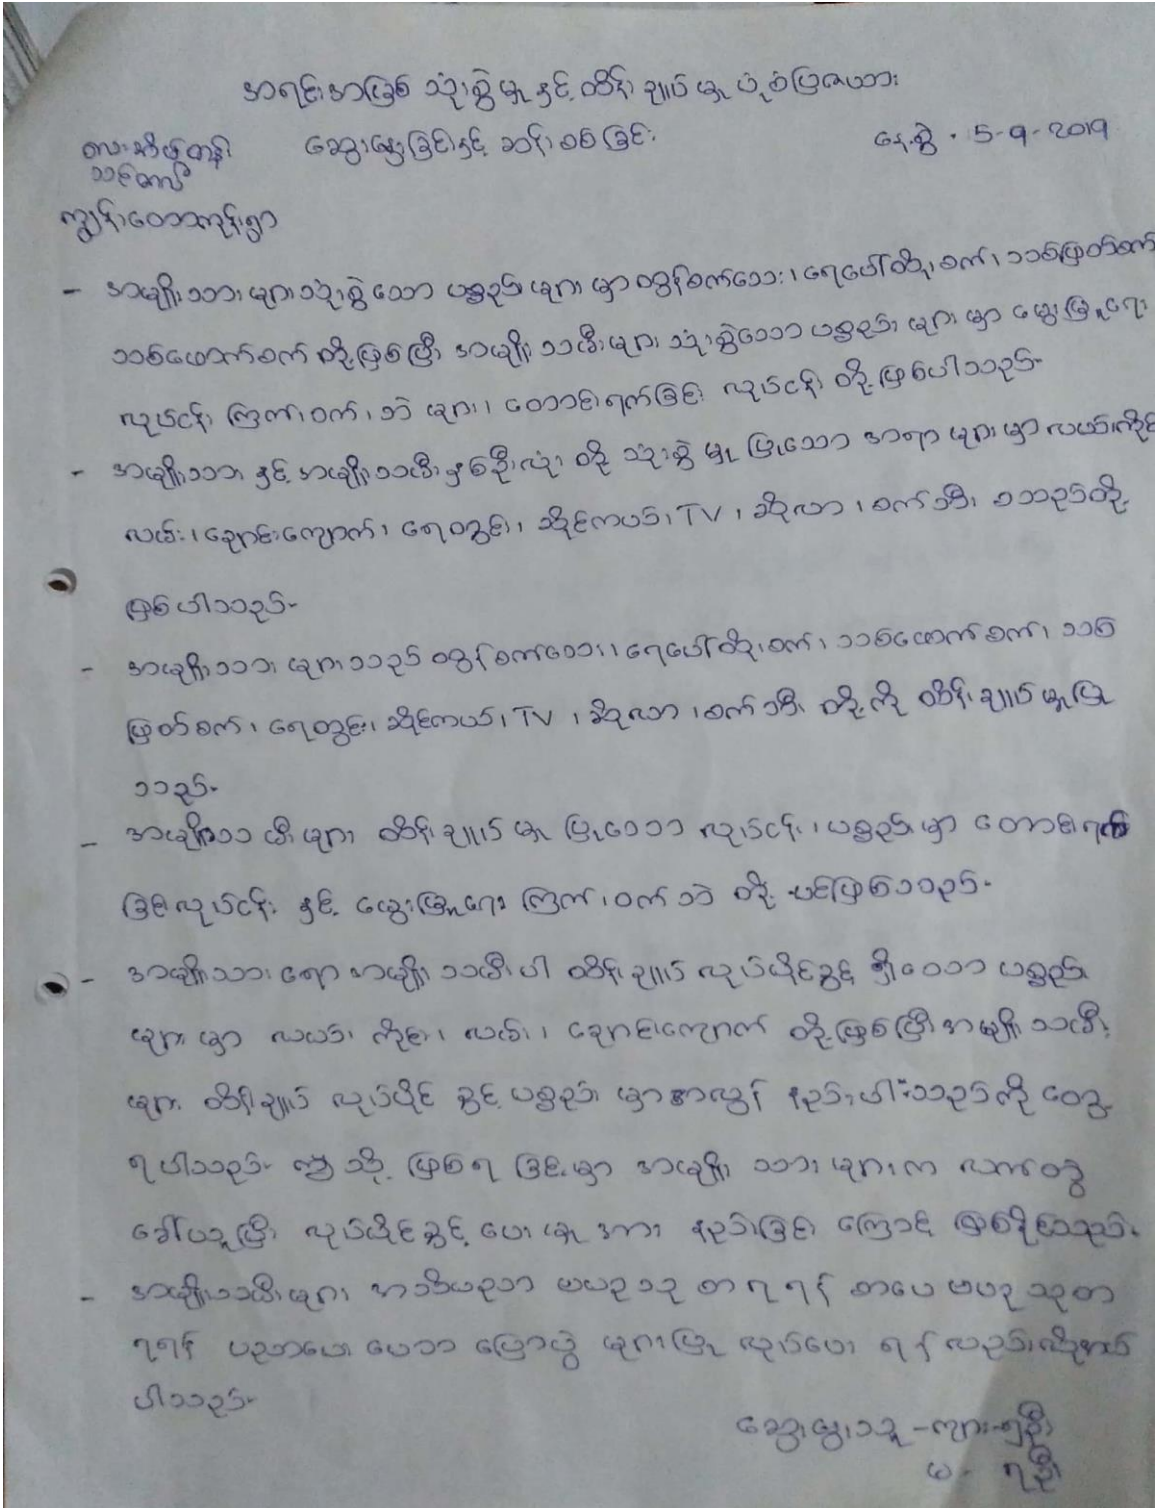 အရင်းအမြစ် သုံးစွဲမှု နှင့် ထိန်းချုပ်မှု ပုံစံပြဇယား
ဆွေးနွေးခြင်းနှင့် ဆန်းစစ်ခြင်း နေ့စွဲ - 5-9-2019
ကျွန်းတောကုန်းရွာ
- အမျိုးသားများသုံးစွဲသော ပစ္စည်းများမှာ ထွန်စက်သေး၊ ရေပေါ်ထိုးစက်၊ သစ်ဖြတ်စက်
သစ်ဖောက်စက် တို့ဖြစ်ပြီး အမျိုးသမီးများ သုံးစွဲသော ပစ္စည်းများမှာ မွေးမြူရေး
လုပ်ငန်း ကြက်၊ ဝက်၊ ဘဲ များ၊ တောင်းရက်ခြင်း လုပ်ငန်း တို့ဖြစ်ပါသည်။
- အမျိုးသား နှင့် အမျိုးသမီး နှစ်ဦးလုံး တို့ သုံးစွဲမှု ပြုသော အရာများမှာ လယ်၊ကိုင်း
လမ်း၊ ချောင်းကျောက်၊ ရေတွင်း၊ ဆိုင်ကယ်၊ TV ၊ ဆိုလာ ၊ စက်ဘီး စသည်တို့
ဖြစ်ပါသည်။
- အမျိုးသားများသည် ထွန်စက်သေး၊ ရေပေါ်ထိုးစက်၊ သစ်ဖောက်စက်၊ သစ်
ဖြတ်စက်၊ ရေတွင်း၊ ဆိုင်ကယ်၊ TV ၊ ဆိုလာ ၊ စက်ဘီး တို့ကို ထိန်းချုပ်မှုပြု
သည်။
- အမျိုးသမီးများ ထိန်းချုပ်မှု ပြုသော လုပ်ငန်း၊ ပစ္စည်းမှာ တောင်းရက်
ခြင်းလုပ်ငန်း နှင့် မွေးမြူရေး ကြက်၊ ဝက် ဘဲ တို့ ပင်ဖြစ်သည်။
- အမျိုးသားရော အမျိုးသမီးပါ ထိန်းချုပ် လုပ်ပိုင်ခွင့် ရှိသော ပစ္စည်း
များမှာ လယ်၊ ကိုင်း၊ လမ်း၊ ချောင်းကျောက် တို့ဖြစ်ပြီး အမျိုးသမီး
များ ထိန်းချုပ် လုပ်ပိုင် ခွင့် ပစ္စည်း မှာ အလွန် နည်းပါးသည်ကို တွေ့
ရပါသည်။ ဤသို့ ဖြစ်ရ ခြင်းမှာ အမျိုးသားများက လက်တွဲ
ခေါ်ယူပြီး လုပ်ပိုင်ခွင့် ပေးမှု အား နည်းခြင်း ကြောင့် ဖြစ်နိုင်သည်။
- အမျိုးသမီးများ အသိပညာ ဗဟုသုတ ရရန် စာပေ ဗဟုသုတ
ရရန် ပညာပေး ဟောပြောပွဲ များပြု လုပ်ပေး ရန် လည်းလိုအပ်
ပါသည်။
ဆွေးနွေးသူ - ကျား -
မ -